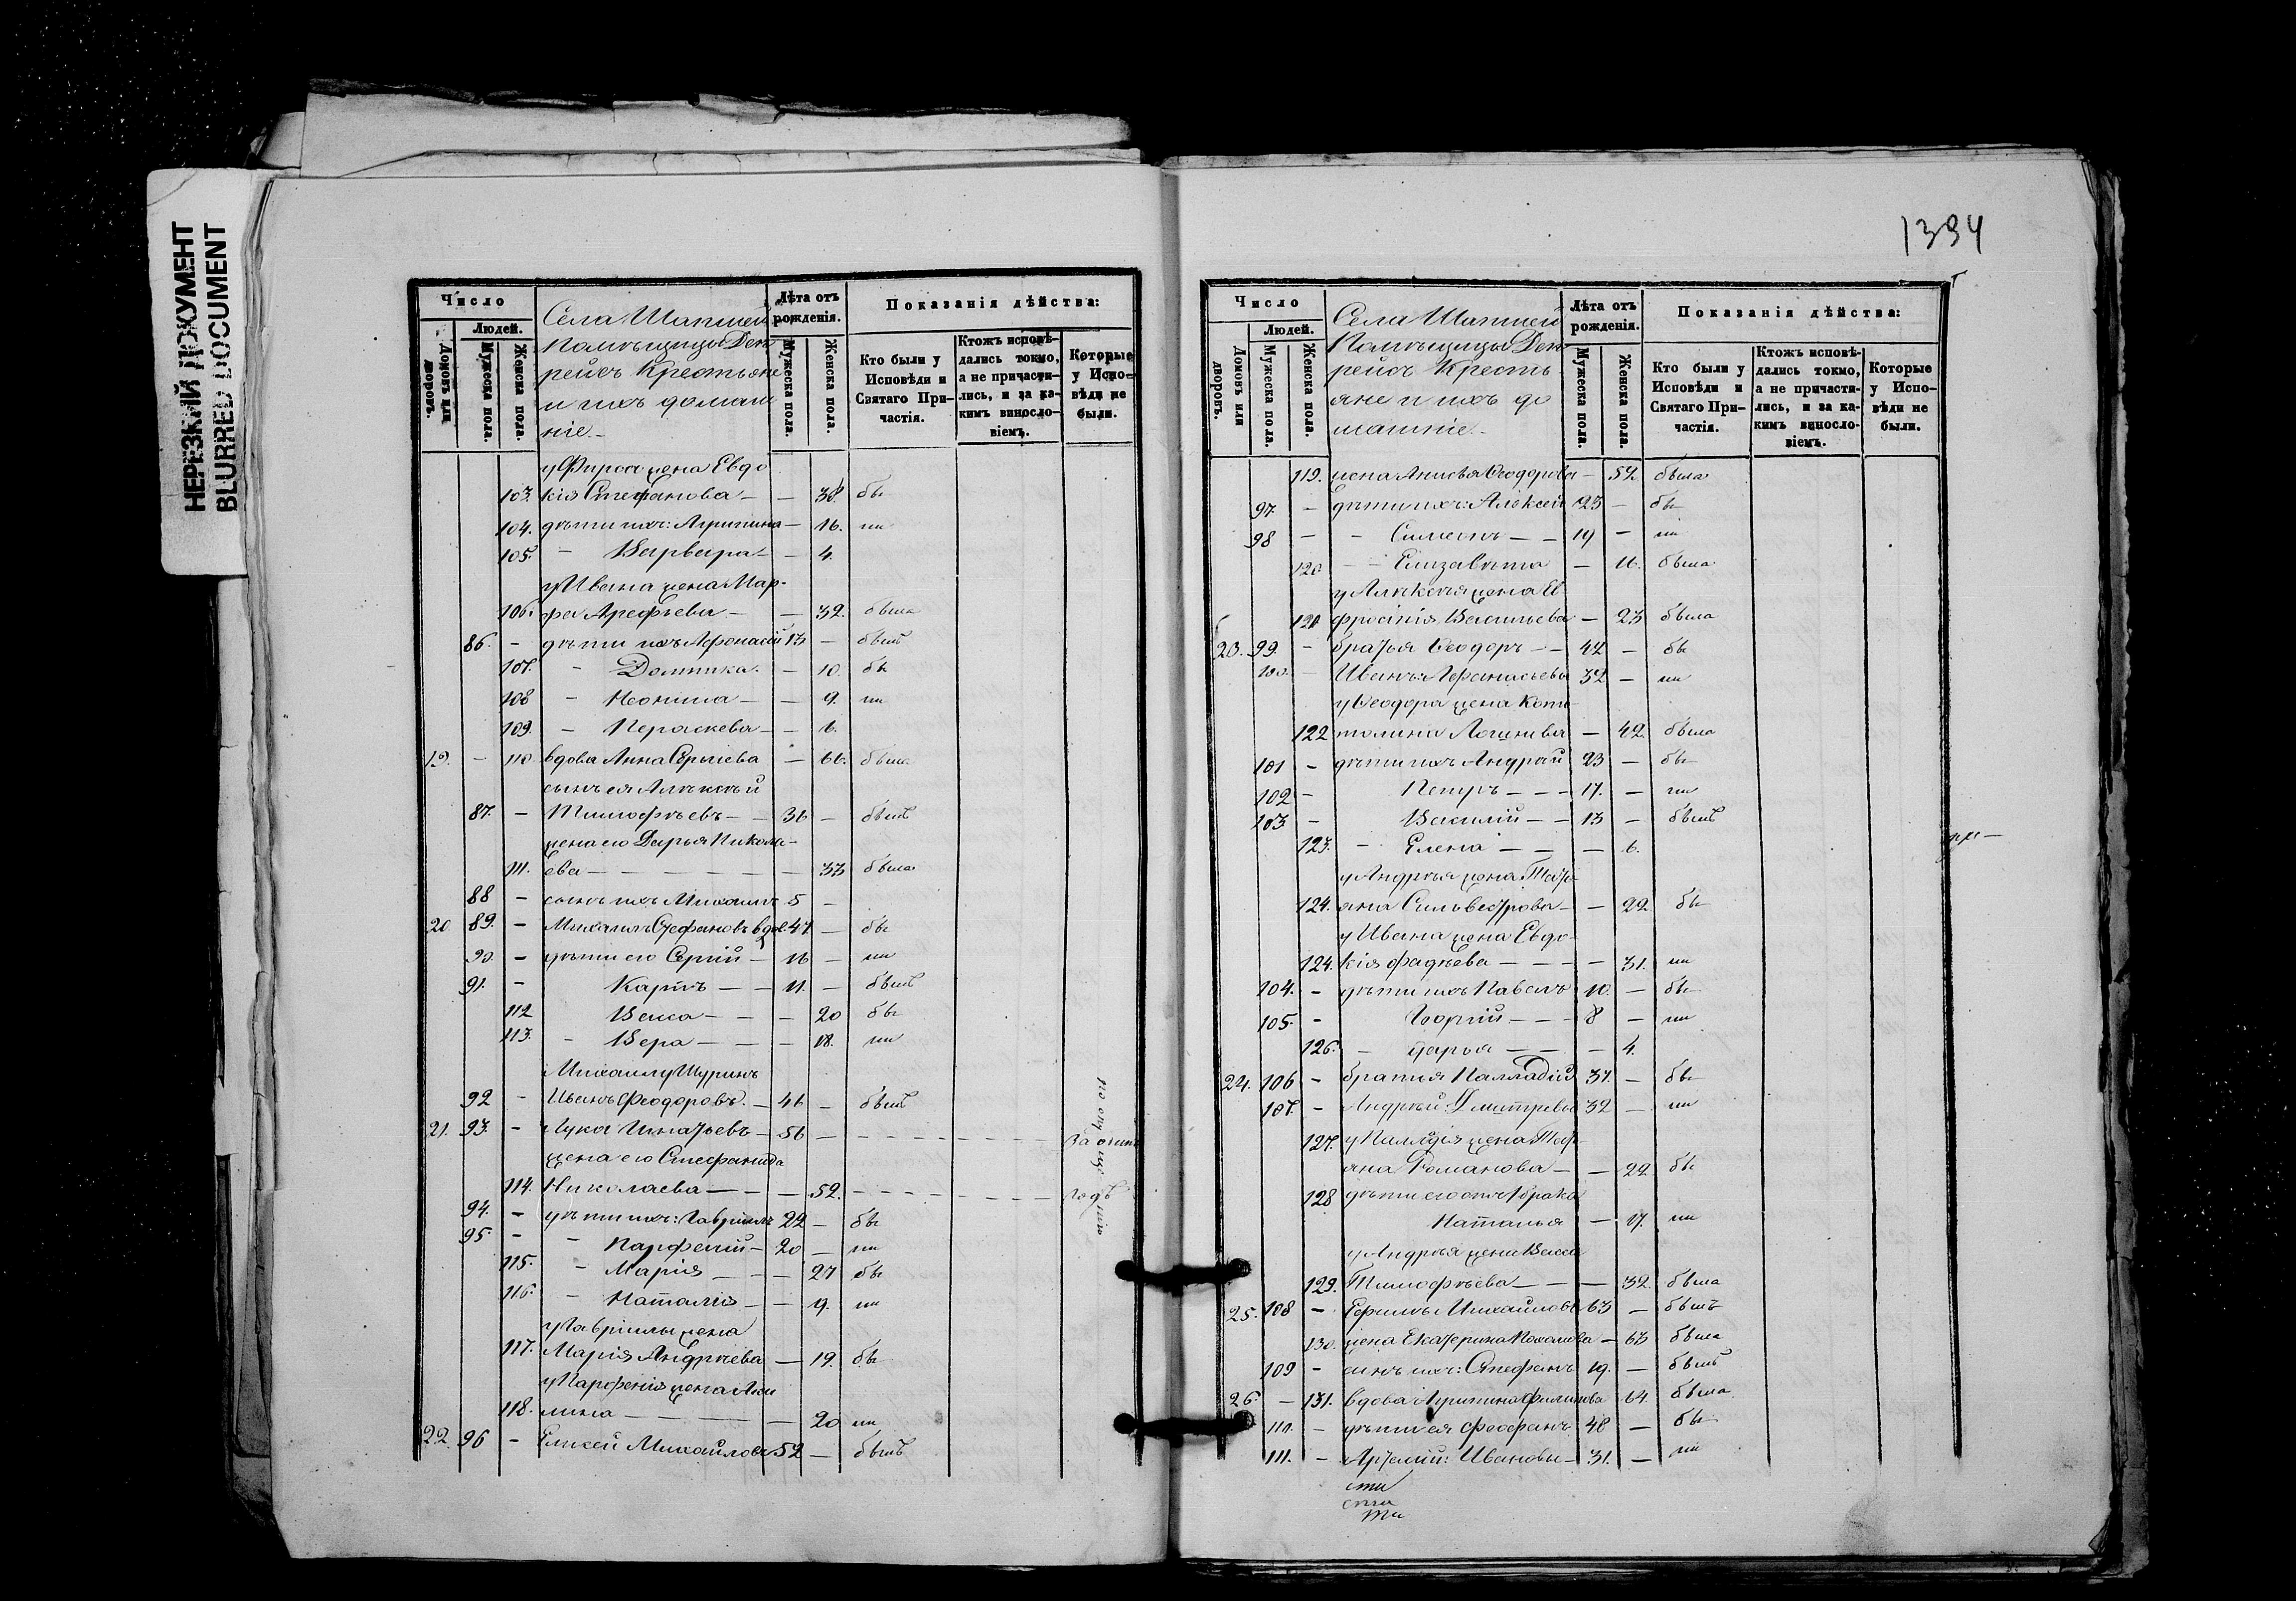 НЕРЕЗКИЙ ДОКУМЕНТ
BLURRED DOCUMENT
1394
Число
Людей.
Домовъ или дворовъ.
Мужеска пола.
Женска пола.
Села
Помѣщицы
Крестьяне
и ихъ домаш
ніе.
Лѣта отъ рожденія.
Мужеска пола.
Женска пола.
Показанія дѣйства:
Кто были у Исповѣди и Святаго Причастія.
Ктожъ исповѣдались токмо, а не причастились, и за какимъ винословіемъ.
Которые у Исповѣди не были.
у жена Евдо
103. кія Стефанова — — 38. бы
104. дѣти ихъ: Агрипина — 16. ли
105. - Варвара — — 4.
у Ивана жена Мар-
106. фа Арефьева — — 32. была
86. - дѣти ихъ Афонасій 13 — былъ
107. - Домника — 10. бы
108 - Неонила — — 9. ли
109. - Параскева — — 6.
19. - 110. вдова Анна Сергіева — 66. была
сынъ ея Алексѣй
87. - Тимофѣевъ — — 36 — былъ
жена его Дарья Никола-
111. ева — — — 33 была
88 - сынъ ихъ Михаилъ 5 —
20 89. - Михаилъ Стефановъ вдов. 47 — бы
90. - дѣти его Сергій — 16 — ли
91. - Карпъ — — 11. — былъ
112 Васса — — — 20 бы
113. - Вера — — — 18. ли
Михаилу Шуринъ
92 - Иванъ Феодоровъ. — 46 — былъ
21. 93. - Лука Игнатьевъ — 56 —
жена его Стефанида
114. Николаева — — — 52.
по опущенію
94. - дѣти ихъ: Гавріилъ 22 — бы
95 - - Парфеній — 20 — ли
115. - Марія — — — 27 бы
116. - Наталія — — 9. ли
у Гавріилы жена
117. Марія Андрѣева — 19. бы
у Парфенія жена Аки
118. лина — — — 20 ли
22. 96 - Елисей Михайловъ 52 — былъ
Число
Людей.
Домовъ или дворовъ.
Мужеска пола.
Женска пола.
Села
Помѣщицы
Кресть
яне и ихъ до
машніе.
Лѣта отъ рожденія.
Мужеска пола.
Женска пола.
Показанія дѣйства:
Кто были у Исповѣди и Святаго Причастія.
Ктожъ исповѣдались токмо, а не причастились, и за какимъ винословіемъ.
Которые у Исповѣди не были.
119. жена Анисья Ѳеодорова — 52. была
97. - дѣти ихъ: Алексѣй 23 — бы
98 - - Симеонъ — — 19 — ли
120 - - Елизавѣта — 16. была
у Алексѣя жена Ев
121 фросинія Васильева — 23 была
23. 99. - братья Ѳеодоръ — — 42 — бы
100. - Иванъ: Афанасьевы 32 — ли
у Ѳеодора жена Кате
122 Логинова — 42. была
101 - дѣти ихъ Андрей 23 — бы
102 - Петръ — — — 17. — ли
103 - Василій — — 13 — былъ
123. - Елена — — — 6.
у Андрѣя жена Тать
124. яна Сильвестрова — — 22 бы
у Ивана жена Евдо-
124. кія Фадѣева — — — 31. ли
104. - дѣти ихъ Павелъ 10. — бы
105. - Георгій — — — 8 — ли
126. - Дарья — — — 4.
24. 106 - братья Палладій 37. — бы
107. - Андрѣй: Дмитріевы 32 — ли
127. у Палладія жена Тать
яна Романова — — 22 бы
128 дѣти его отъ 1 брака
Наталья — 17. ли
у Андрѣя жена Васса
129. Тимофѣева — — — 32. была
25. 108 - Ефимъ Михайловъ 63 — былъ
130. жена Екатерина — 63 была
109 - сынъ ихъ: Стефанъ 19. — былъ
26. - 131. вдова Агрипина Филипова 64. была
110. - дѣти ея Феофанъ 48 — бы
111. - Артемій: Ивановы — 31. — ли